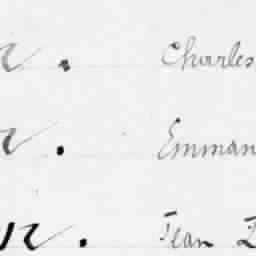 r. Charles
r. Emman
r. Jean